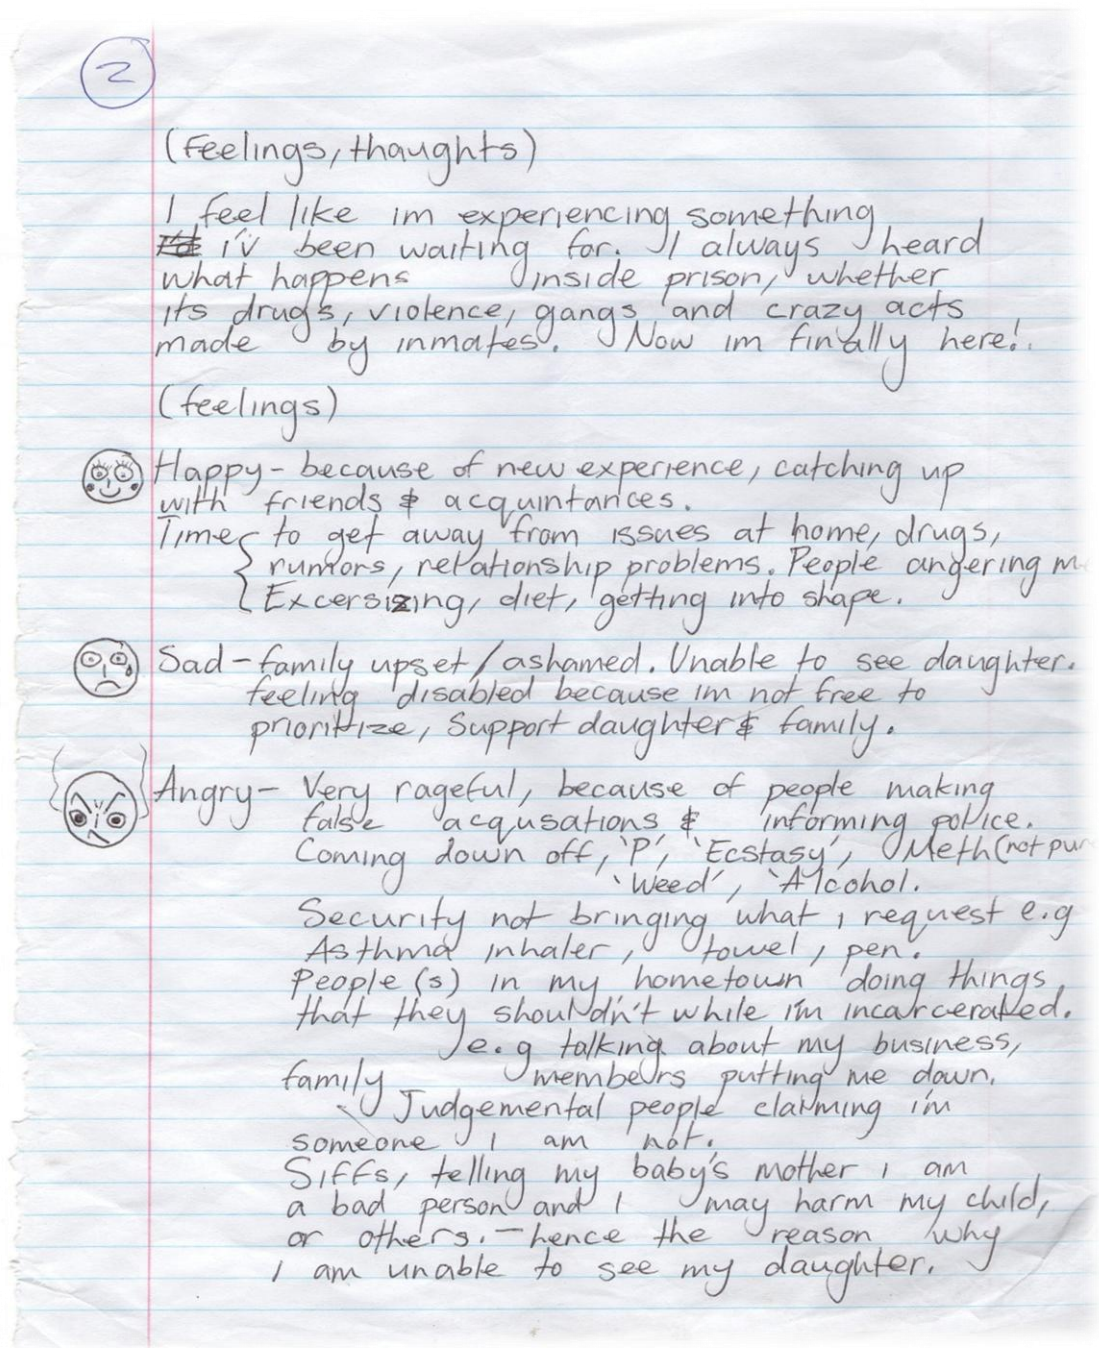 2
(Feelings, thaughts)
I feel like im experiencing something
i'v been waiting for. I always heard
what happens inside prison, whether
its drugs, violence, gangs and crazy acts
made by inmates. Now im finally here!
(feelings)
Happy - because of new experience, catching up
with friends & acquintances.
Time to get away from issues at home, drugs,
rumors, relationship problems. People angering m
Excersizing, diet, getting into shape.
Sad - family upset/ashamed. Unable to see daughter.
feeling disabled because im not free to
prioritize, Support daughter & family.
Angry - Very rageful, because of people making
false acqusations & informing police.
Coming down off, 'P', 'Ecstasy', Meth (not pur
'Weed', 'Alcohol.
Security not bringing what i request e.g
Asthma inhaler, towel, pen.
People(s) in my hometown doing things
that they shouldn't while i'm incarcerated.
e.g talking about my business,
family members putting me down.
Judgemental people claiming i'm
someone I am not.
Siffs, telling my baby's mother i am
a bad person and I may harm my child,
or others. - hence the reason why
I am unable to see my daughter.